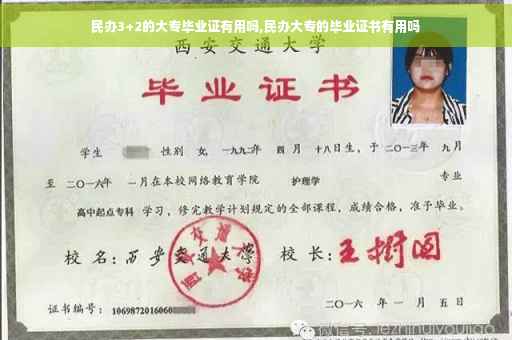 民办3+2的大专毕业证有用吗,民办大专的毕业证书有用吗
西安交通大学
毕业证书
学生 性别 女, 一九九二年 四月 十八日生, 于二〇一三年 九月
至 二〇一六年 一月在本校网络教育学院 护理学 专业
高中起点专科 学习, 修完教学计划规定的全部课程, 成绩合格, 准予毕业。
校名: 西安交通大学 校长: 王树国
西安交通大学
证书编号: 1069872016060
二〇一六年一月五日
微信号: jiezhihuiyoujiao